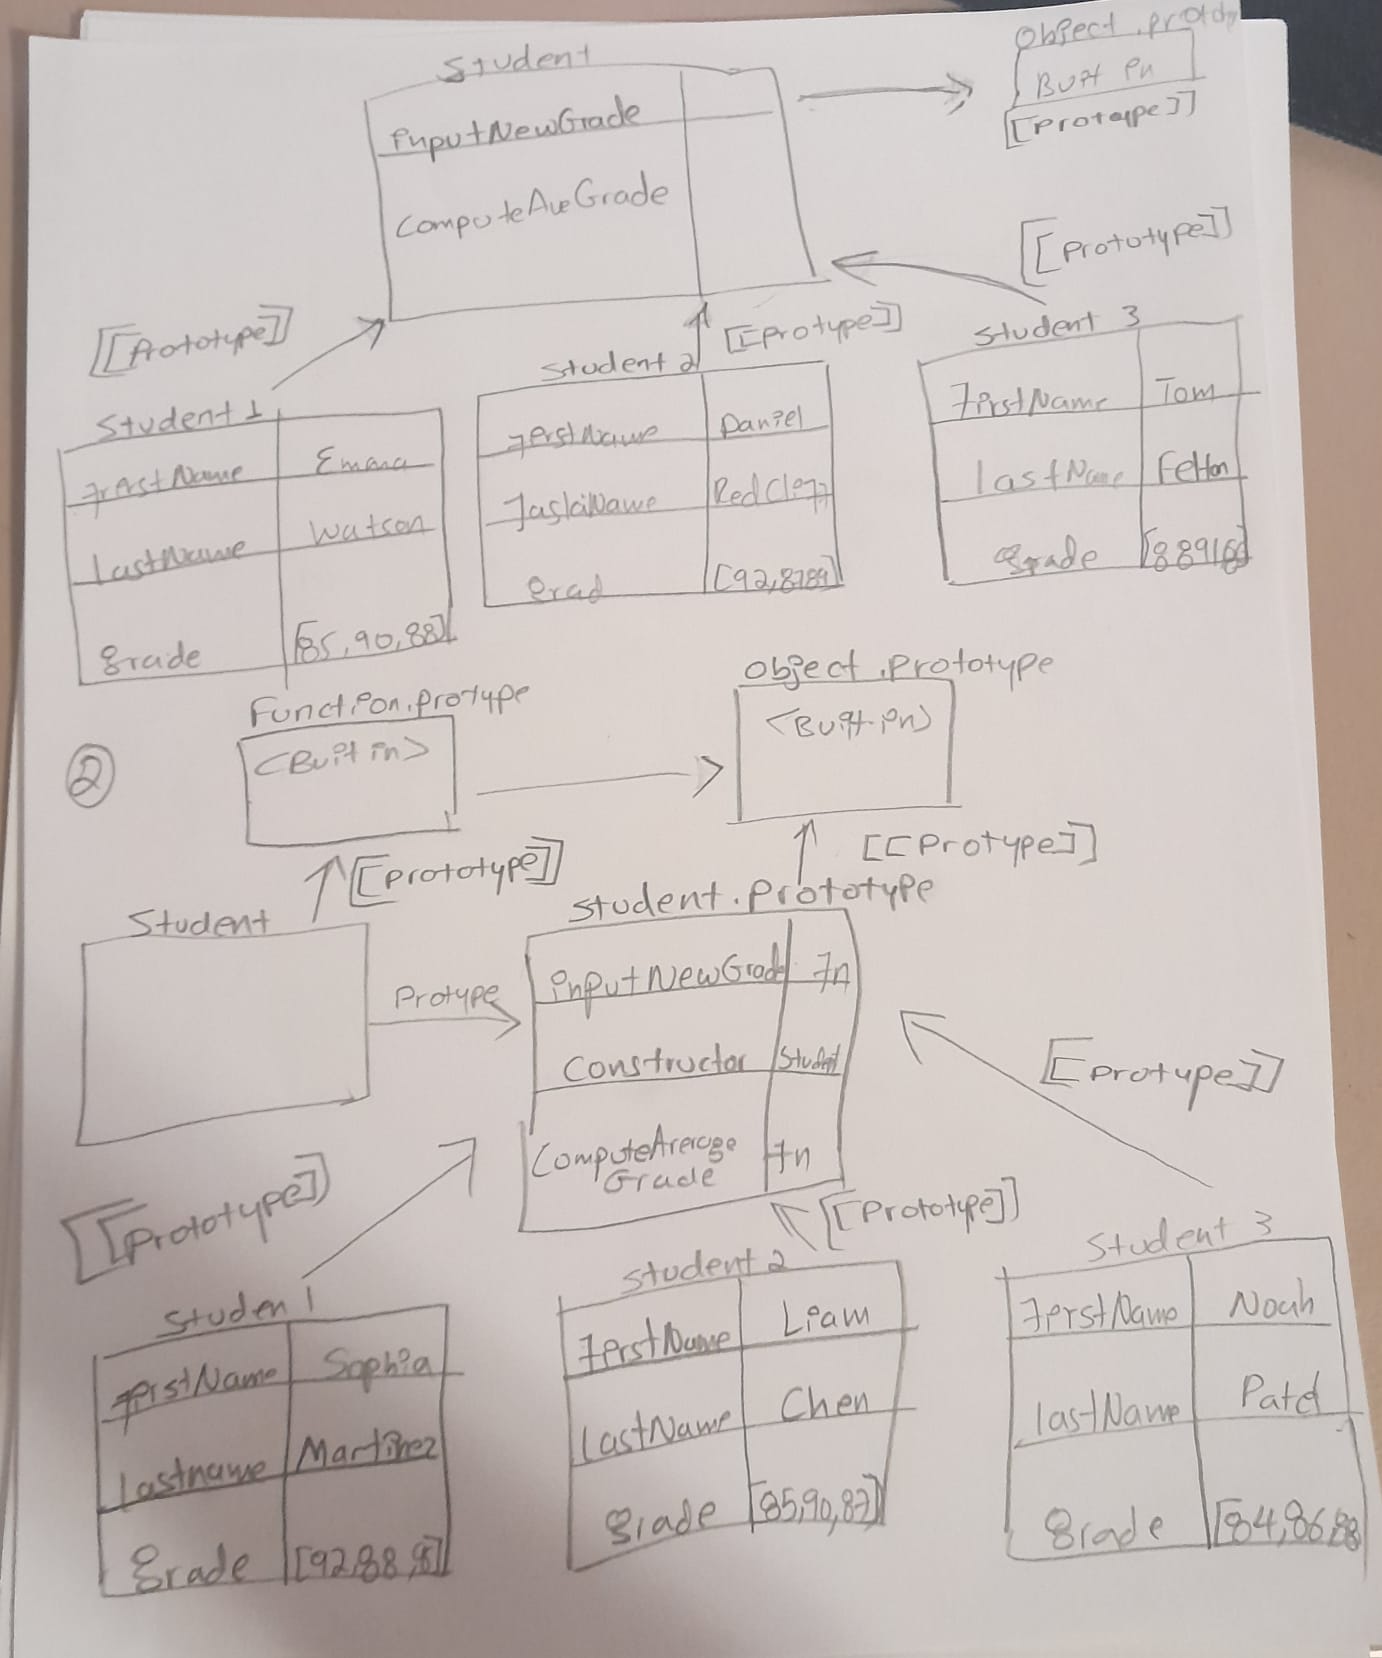 Student
inputNewGrade
ComputeAveGrade
Object.prototy
Built in
[[Protoype]]
[[Prototype]]
[[Prototype]]
[[Protype]]
Student 1
firstName Emma
LastName Watson
grade [85,90,88]
Student 2
firstName Daniel
RedCleff
Grad [92,8789]
Student 3
firstName Tom
lastName Felton
grade
②
Function.protype
<Built in>
Object.Prototype
<Built-in>
[[Prototype]]
[[Protype]]
Student
Protype
Student.Prototype
inputNewGrad fn
Constructor Student
ComputeAverage
Grade fn
[[Prototype]]
[[Prototype]]
[[Protype]]
Studen 1
firstName Sophia
Lastname Martinez
grade
Student 2
firstName Liam
LastName Chen
grade [85,90,87]
Student 3
firstName Noah
lastName Patel
grade [84,86,88